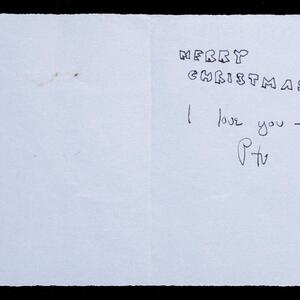 MERRY
CHRISTMAS
I love you –